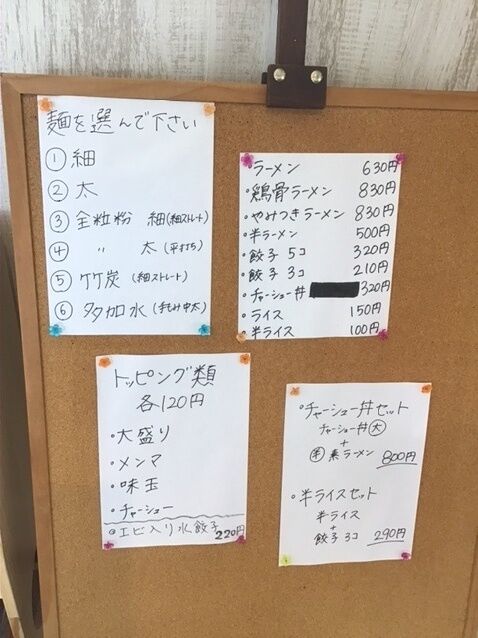 麺を選んで下さい
① 細
② 太
③ 全粒粉 細(細ストレート)
④ 〃 太(平打ち)
⑤ 竹炭(細ストレート)
⑥ 多加水(手もみ中太)
ラーメン 630円
・鶏骨ラーメン 830円
・やみつきラーメン 830円
・半ラーメン 500円
・餃子 5コ 320円
・餃子 3コ 210円
・チャーシュー丼 320円
・ライス 150円
・半ライス 100円
トッピング類
各120円
・大盛り
・メンマ
・味玉
・チャーシュー
・エビ入り水餃子 220円
・チャーシュー丼セット
チャーシュー丼 大
+
半 素ラーメン 800円
・半ライスセット
半ライス
+
餃子 3コ 290円